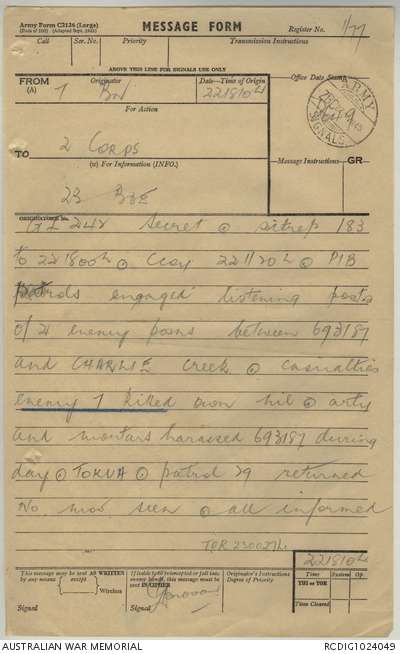 Army Form C2136 (Large)
MESSAGE FORM
Register No. 1/77
Call Ser. No. Priority Transmission Instructions
ABOVE THIS LINE FOR SIGNALS USE ONLY
FROM
(A)
Originator
7 Bn
Date-Time of Origin
221810H
Office Date Stamp
ARMY
SIGNALS
For Action
TO
2 Corps
(W) For Information (INFO.)
Message Instructions GR
23 Bde
ORIGINATOR'S No.
242 Secret @ sitrep 183
to 221800H @ C coy 221120H @ PIB
engaged listening posts
of 4 enemy posns between 693187
and CHARLIE Creek @ casualties
enemy 7 killed own nil @ arty
and mortars harassed 693187 during
day @ TOKUA @ patrol 29 returned
No mov seen @ all informed
TOR 230027L
This message may be sent AS WRITTEN
by any means except
Wireless
Signed
If liable to be intercepted or fall into
enemy hands, this message must be
sent IN CIPHER
Signed
Originator's Instructions
Degree of Priority
221810H
Time System Op.
THI or TOR
Time Cleared
AUSTRALIAN WAR MEMORIAL
RCDIG1024049